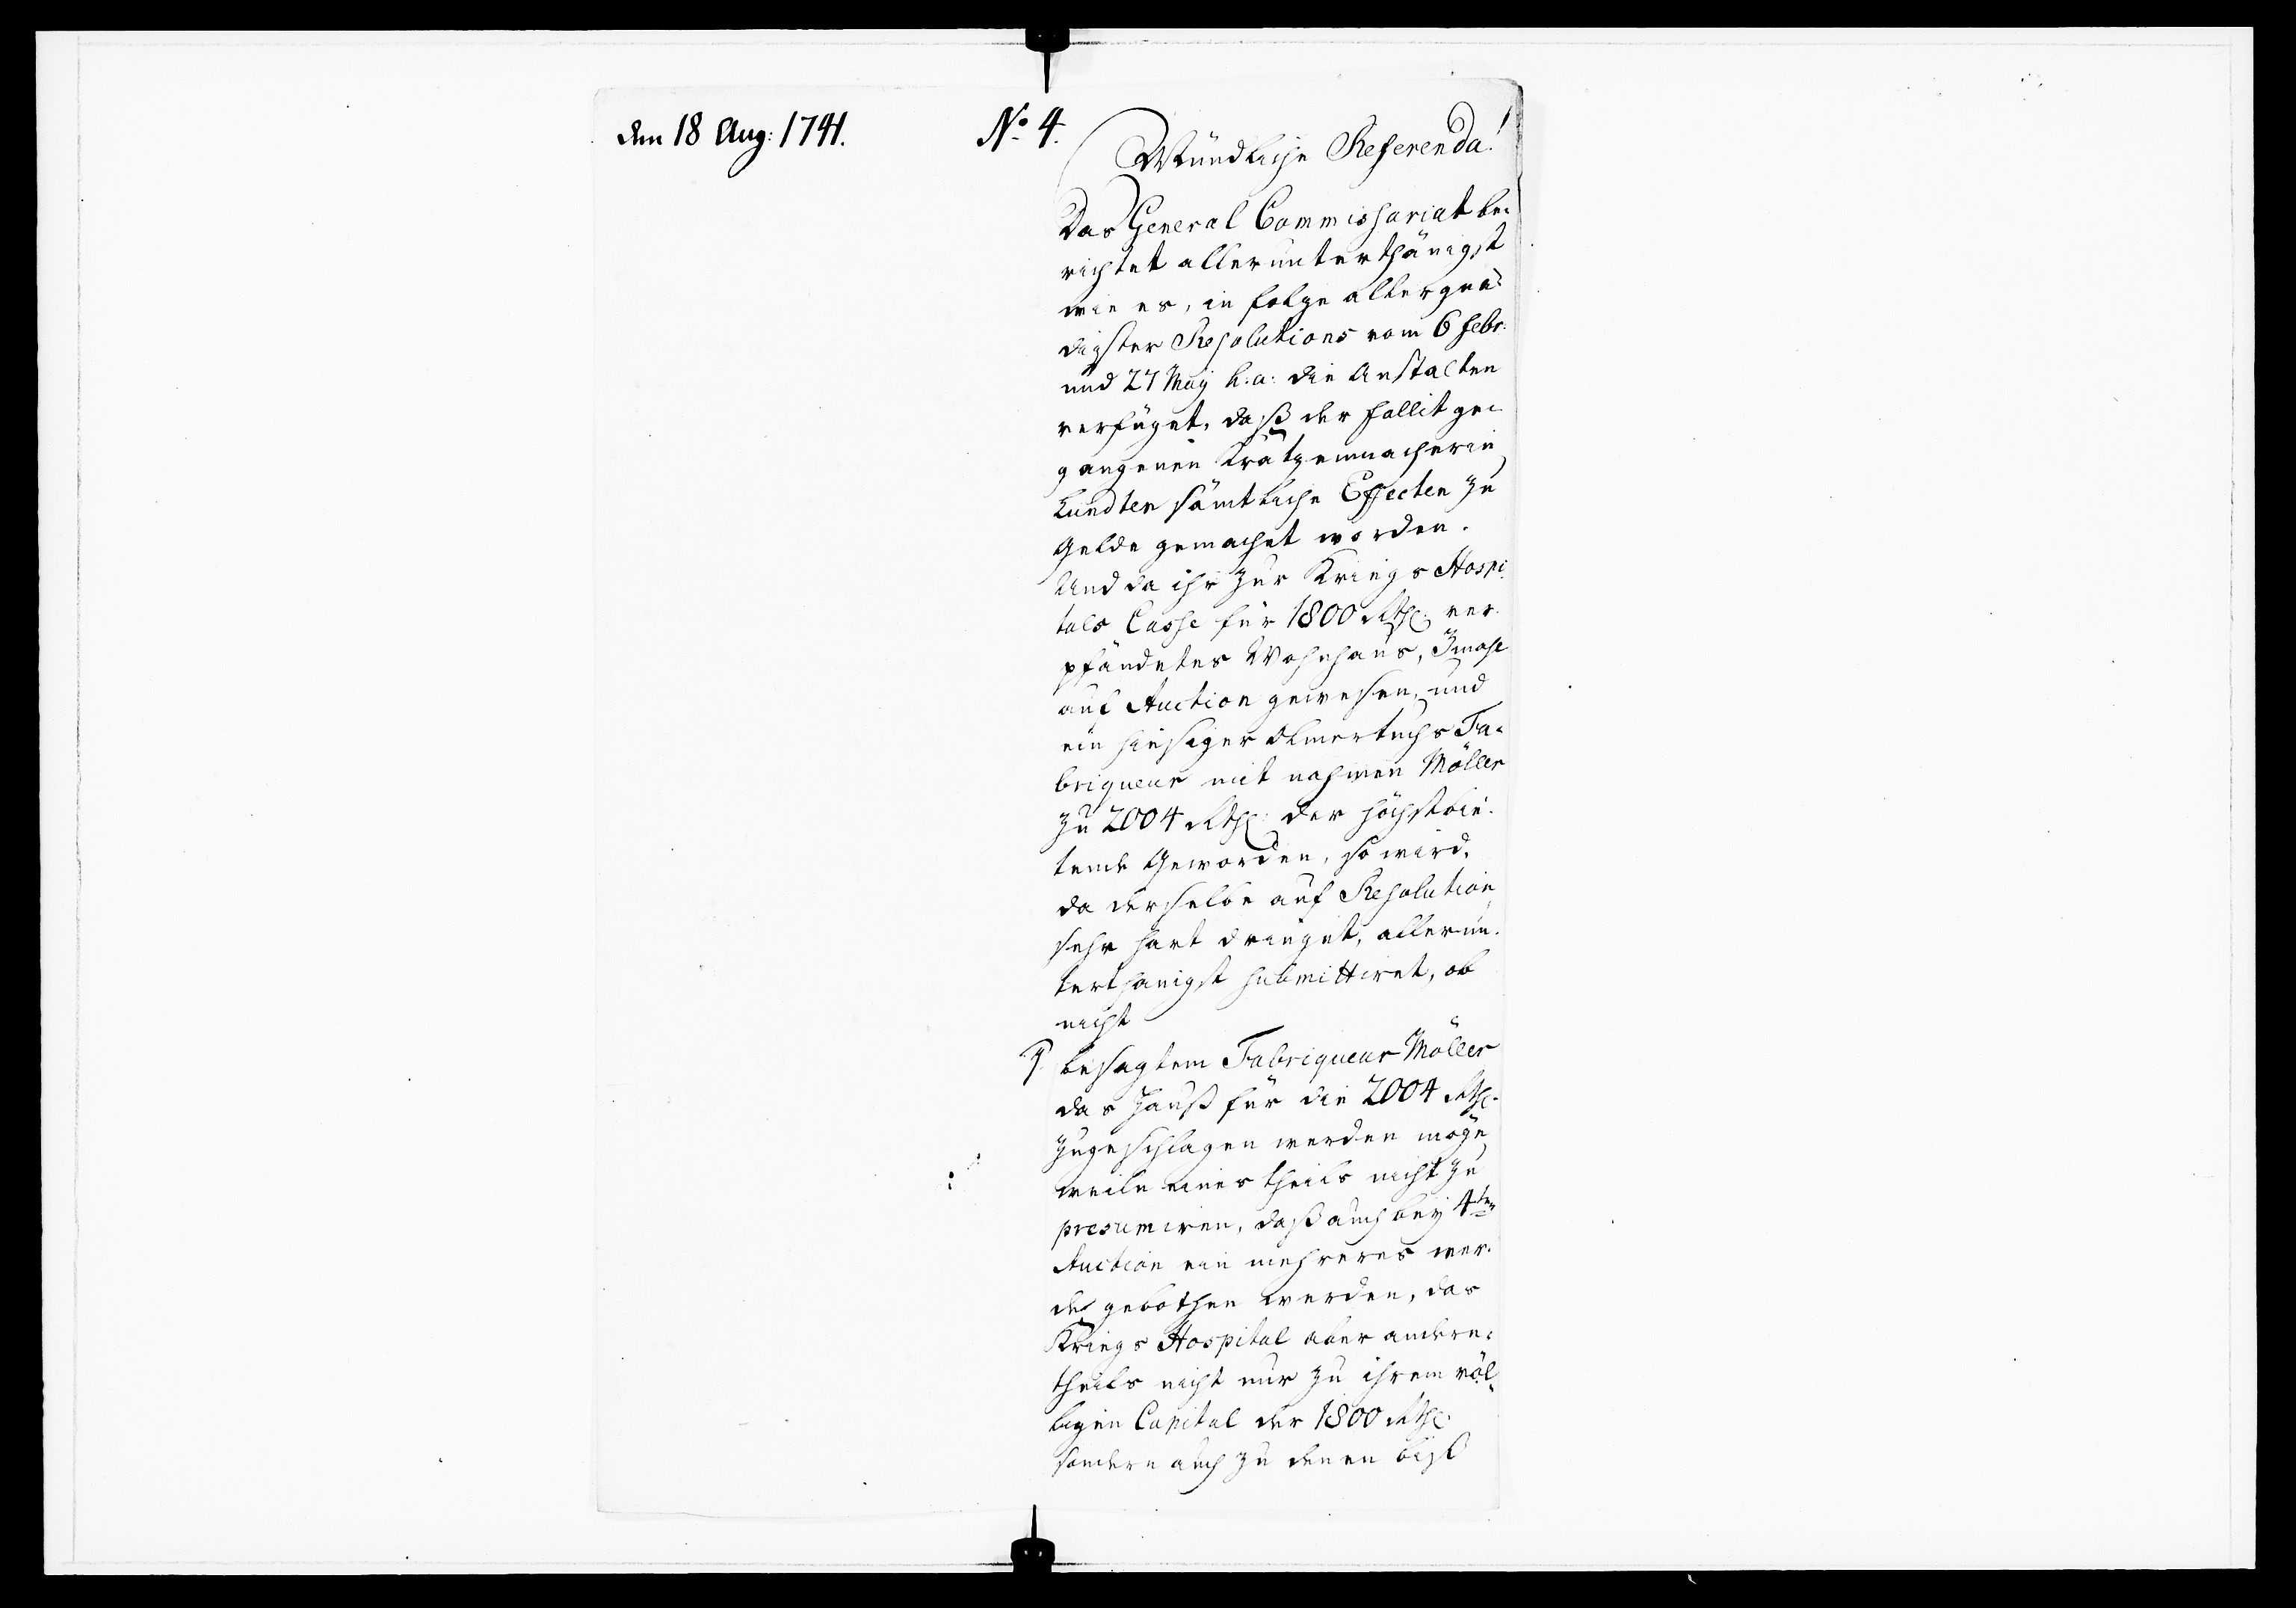 den 18 Aug: 1741.
No 4.
Mündliche Referenda!
Das General Commissariat be-
richtet allerunterthänigst
wie es, in folge allergnä-
digster Resolutions vom 6 Febr:
und 27 May h: a: die Anstalten
verfüget, daß der fallit ge-
gangenen Krätzenmacherin
Lundten sämtliche Effecten zu
Gelde gemachet worden.
Und da ihr zur Kriegs Hospi-
tals Casse für 1800 Rthl. ver-
pfändetes Wohnhaus, 3mahl
auf Auction gewesen, und
ein hiesiger Olmertuchs Fa-
briqueur mit nahmen Möller
zu 2004 Rthl: der höchstbie-
tende Geworden, so wird,
da derselbe auf Resolution
sehr hart dringet, allerun-
terthänigst submittiret, ob
nicht
besagtem Fabriqueur Möller
das Hauß für die 2004 Rthl.
zugeschlagen werden möge,
weiln eines theils nicht zu
presumiren, daß auch bey 4ten
Auction ein mehreres wer-
de gebothen werden, das
Kriegs Hospital aber andern-
theils nicht nur zu ihrem völ-
ligen Capital der 1800 Rthl.
sondern auch zu denen biß